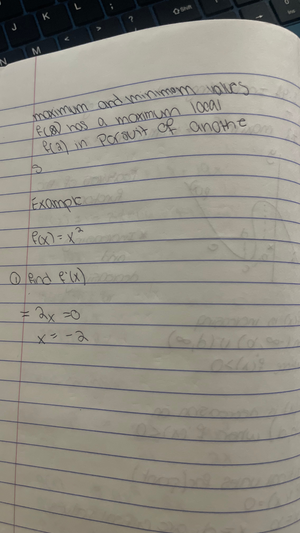 J K L
N M < > ? Shift
maximum and minimum values
f(x) has a maximum local
f(a) in porsuit of anothe
Example
f(x) = x²
① find f'(x)
= 2x = 0
x = -2